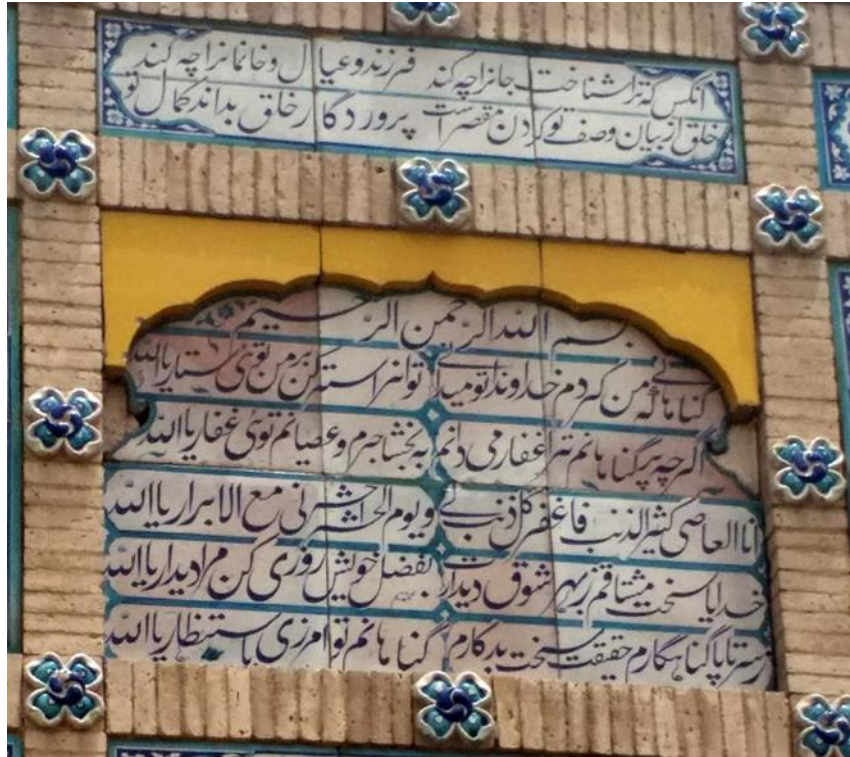 انکس که ترا شناخت جانرا چه کند فرزند و عیال و خانمانرا چه کند
خلق از بیان وصف تو کردن مقصر است پروردگار خلق بداند کمال تو
بسم الله الرحمن الرحیم
گناهانی که من کردم خداوندا تو میدانی تو انراستر کن بر من توئی ستار یا الله
اگر چه پرگناهانم ترا غفار می دانم به بخشا جرم و عصیانم توئی غفار یا الله
انا العاصی کثیر الذنب فاغفر کل ذنب لی و یوم الحشر حشرنی مع الابرار یا الله
خدایا سخت مشتاقم زبهر شوق دیدارت بفضل خویش روزی کن مرا دیدار یا الله
زسر تا پا گناهگارم حقیقت سخت بدکارم گناهانم تو امرزی با ستنظار یا الله